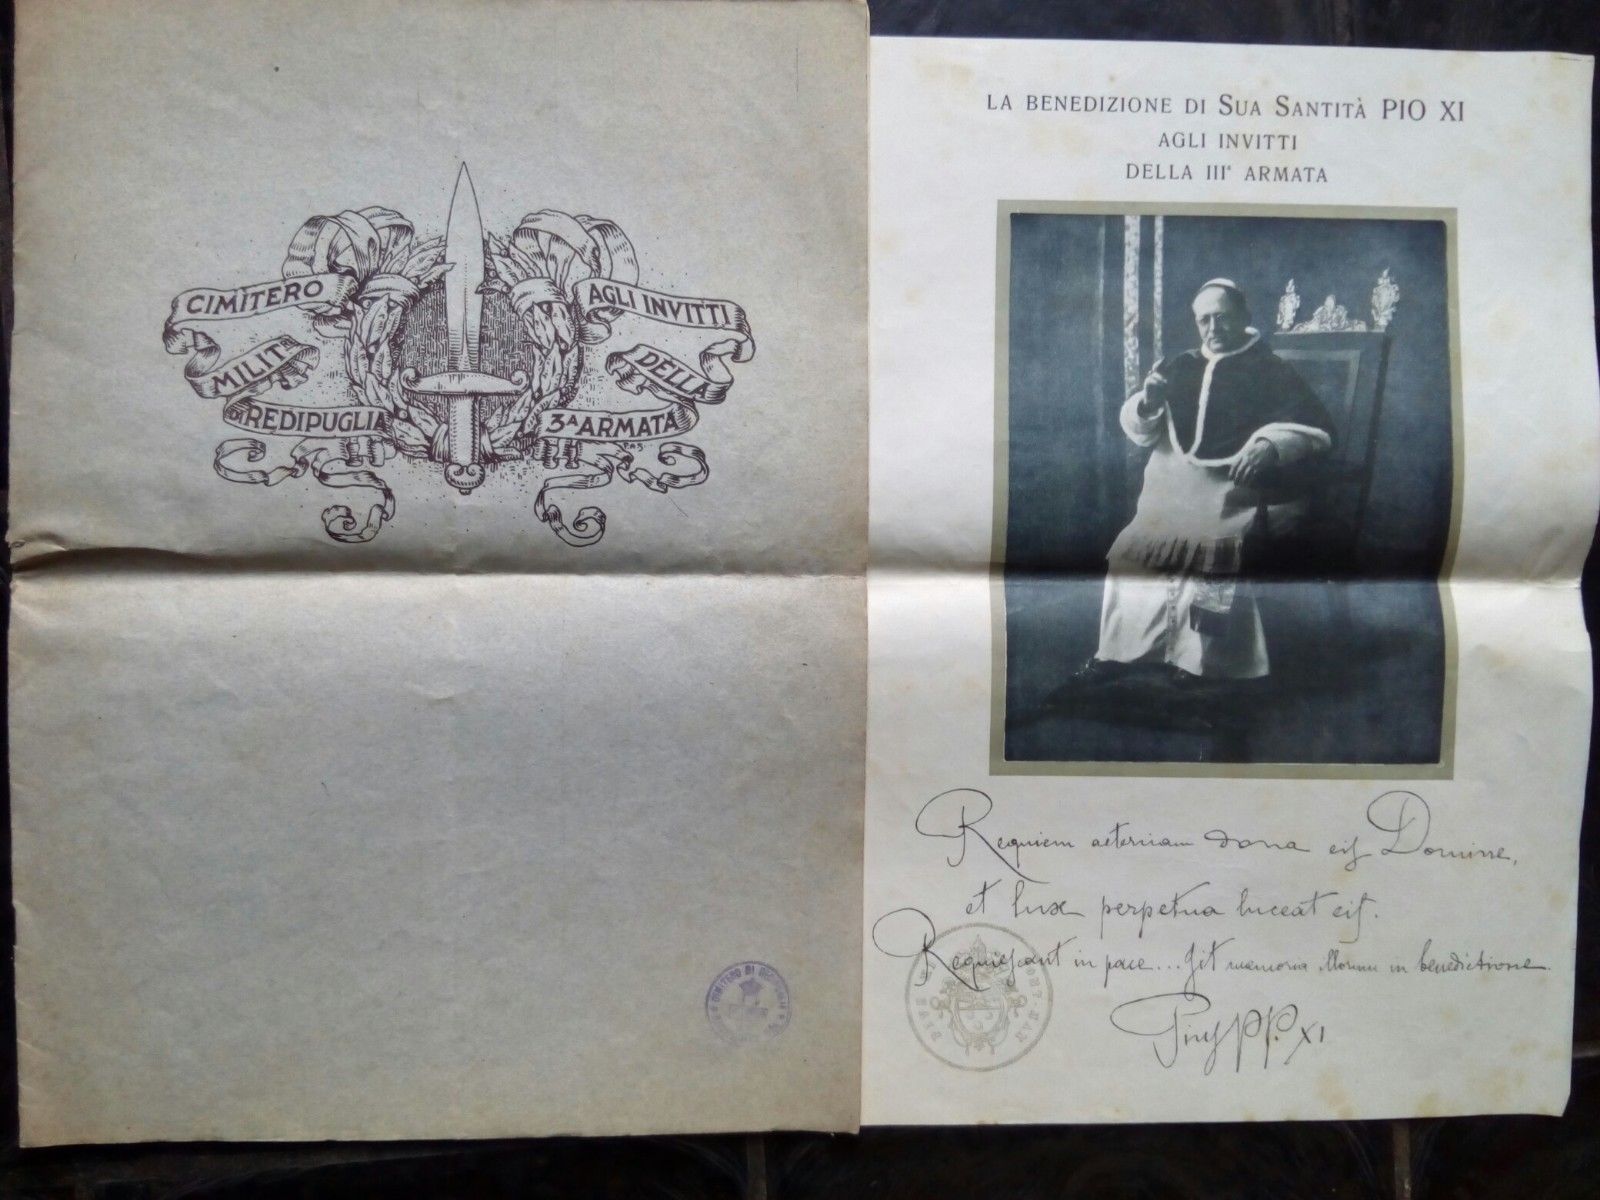 CIMITERO
MILITRE
DI REDIPUGLIA
AGLI INVITTI
DELLA
3A ARMATA
CIMITERO DI
LA BENEDIZIONE DI SUA SANTITÀ PIO XI
AGLI INVITTI
DELLA IIIª ARMATA
Requiem aeternam dona eis Domine,
et lux perpetua luceat eis.
Requiescant in pace... Sit memoria illorum in benedictione.
Pius PP. XI